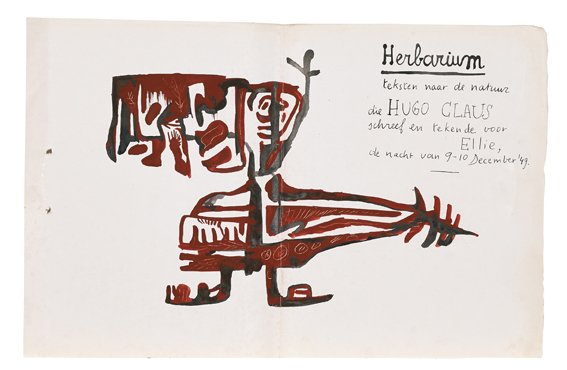 Herbarium
teksten naar de natuur
die HUGO CLAUS
schreef en tekende voor
Ellie,
de nacht van 9-10 December '49.